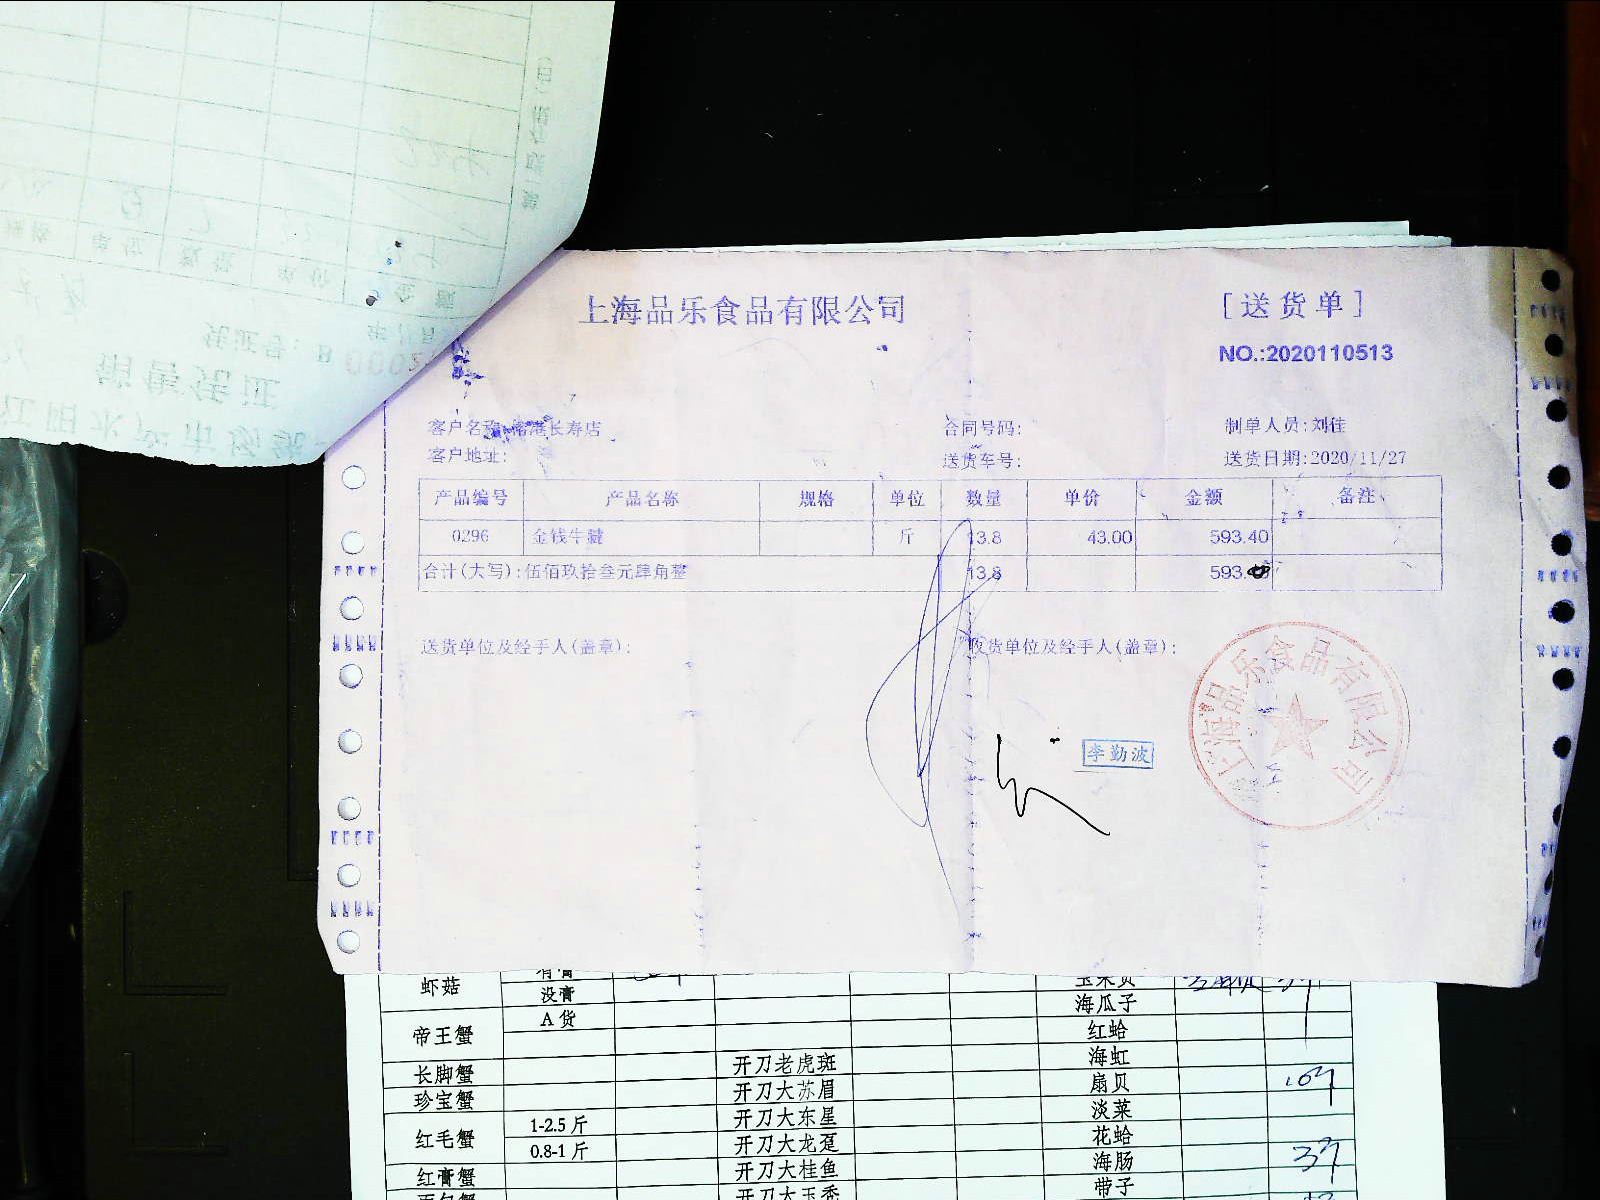 上海品乐食品有限公司
[送货单]
NO.:2020110513
客户名称: 港长寿店
合同号码:
制单人员:刘佳
客户地址:
送货车号:
送货日期:2020/11/27
产品编号 产品名称 规格 单位 数量 单价 金额 备注
0296 金钱牛腱 斤 13.8 43.00 593.40
合计(大写):伍佰玖拾叁元肆角整 13.8 593.
送货单位及经手人(盖章):
收货单位及经手人(盖章):
李勤波
上海品乐食品有限公司
虾菇 有膏
没膏 海瓜子
帝王蟹 A货 红蛤
长脚蟹 开刀老虎斑 海虹
珍宝蟹 开刀大苏眉 扇贝
红毛蟹 1-2.5斤 开刀大东星 淡菜
0.8-1斤 开刀大龙趸 花蛤
红膏蟹 开刀大桂鱼 海肠
带子
销售凭证
凭证号: B 000